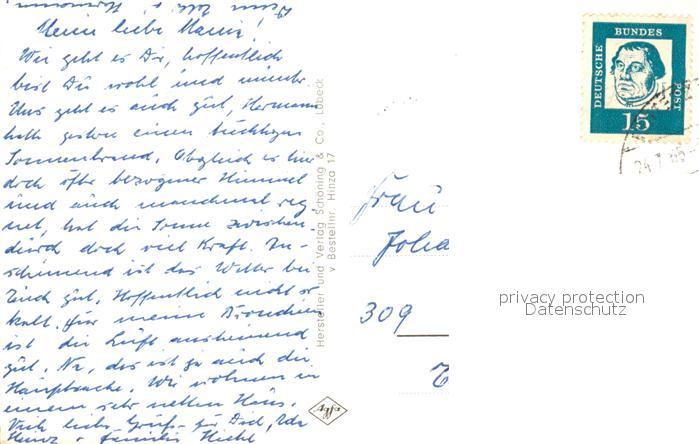 Meine liebe Mami!
Wie geht es Dir, hoffentlich
bist Du wohl und munter.
Uns geht es auch gut, Hermann
hatte gestern einen tüchtigen
Sonnenbrand. Obgleich es hier
doch öfter bezogener Himmel
und auch manchmal reg-
net, hat die Sonne zwischen-
durch doch viel Kraft. An-
scheinend ist das Wetter bei
Euch gut. Hoffentlich nicht so
kalt. Für meine Bronchien
ist die Luft anscheinend
gut. Na, das ist ja auch die
Hauptsache. Wir wohnen in
einem sehr netten Haus.
Viele liebe Grüße für Dich,
Heinz u Familie
Hersteller und Verlag Schöning & Co., Lübeck
v Bestellnr. Hinza 17
Agfa
DEUTSCHE
BUNDES
POST
15
24.7.65
Frau
Joha
309
privacy protection
Datenschutz